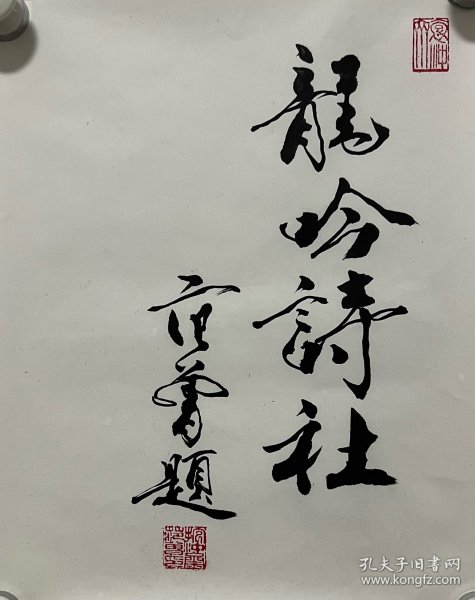 龍吟詩社
范曾題
孔夫子旧书网
www.kongfz.com